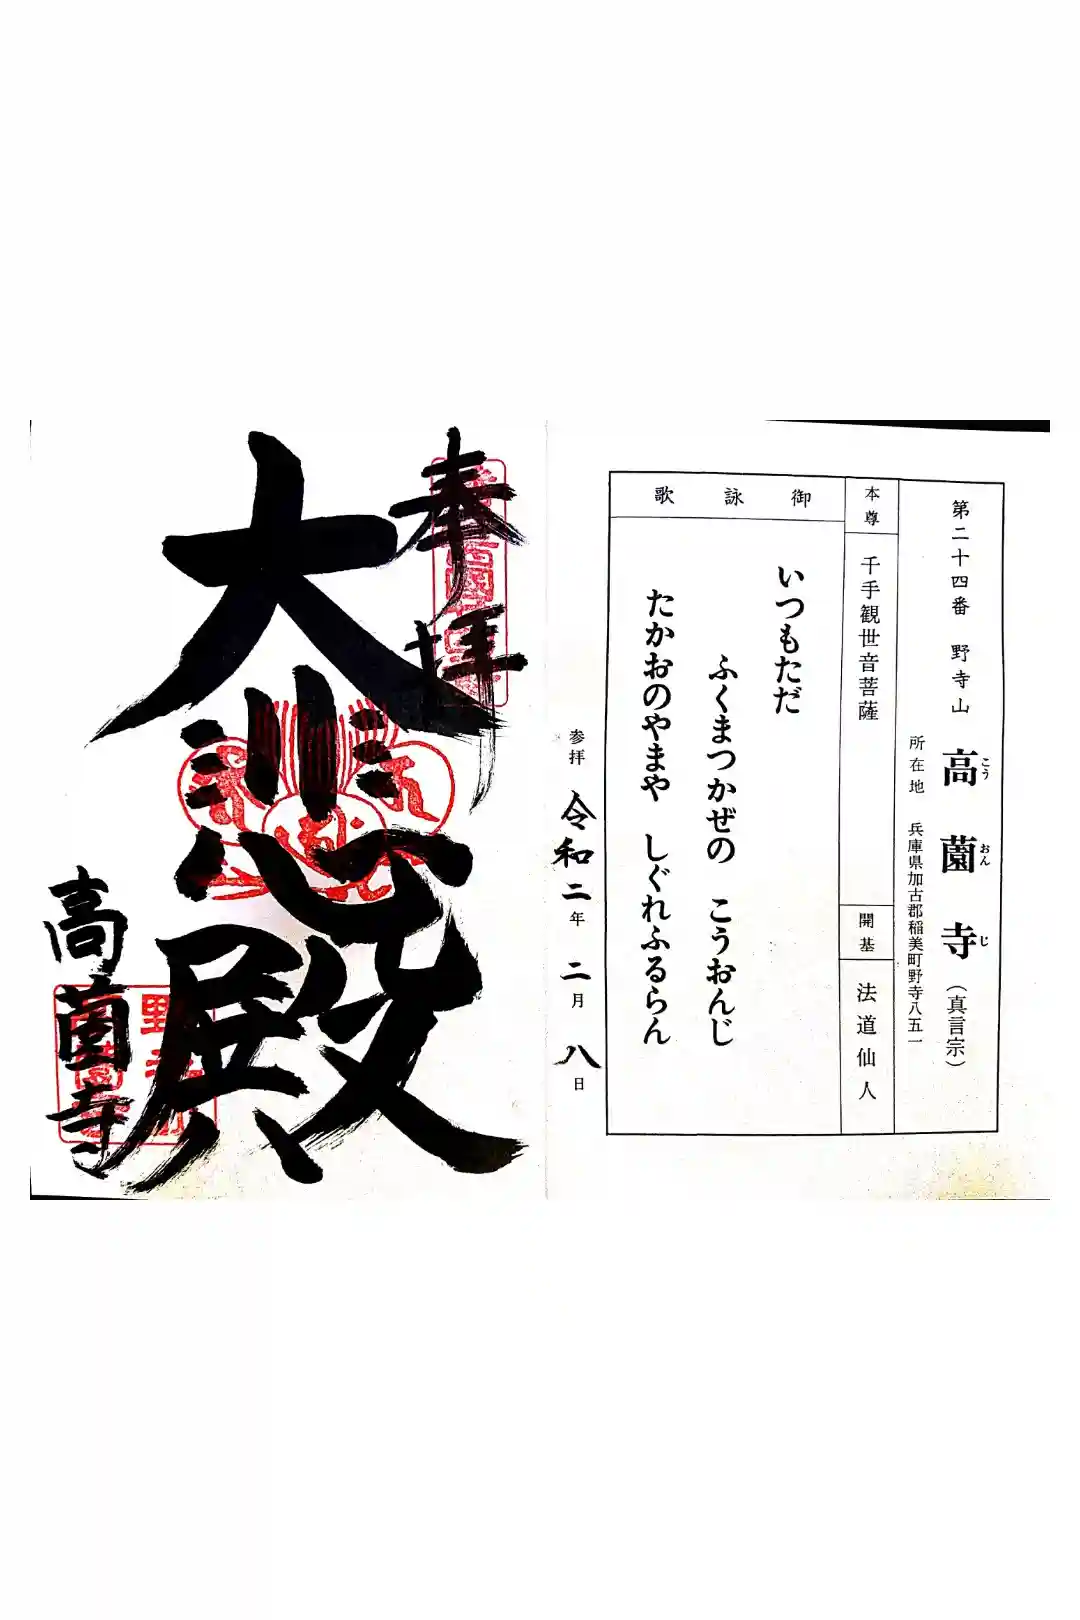 第二十四番 野寺山 高薗寺(真言宗)
こう おん じ
所在地 兵庫県加古郡稲美町野寺八五一
本尊
千手観世音菩薩
開基
法道仙人
御詠歌
いつもただ
ふくまつかぜの こうおんじ
たかおのやまや しぐれふるらん
参拝 令和二年 二月 八日
奉拝
大悲殿
高薗寺